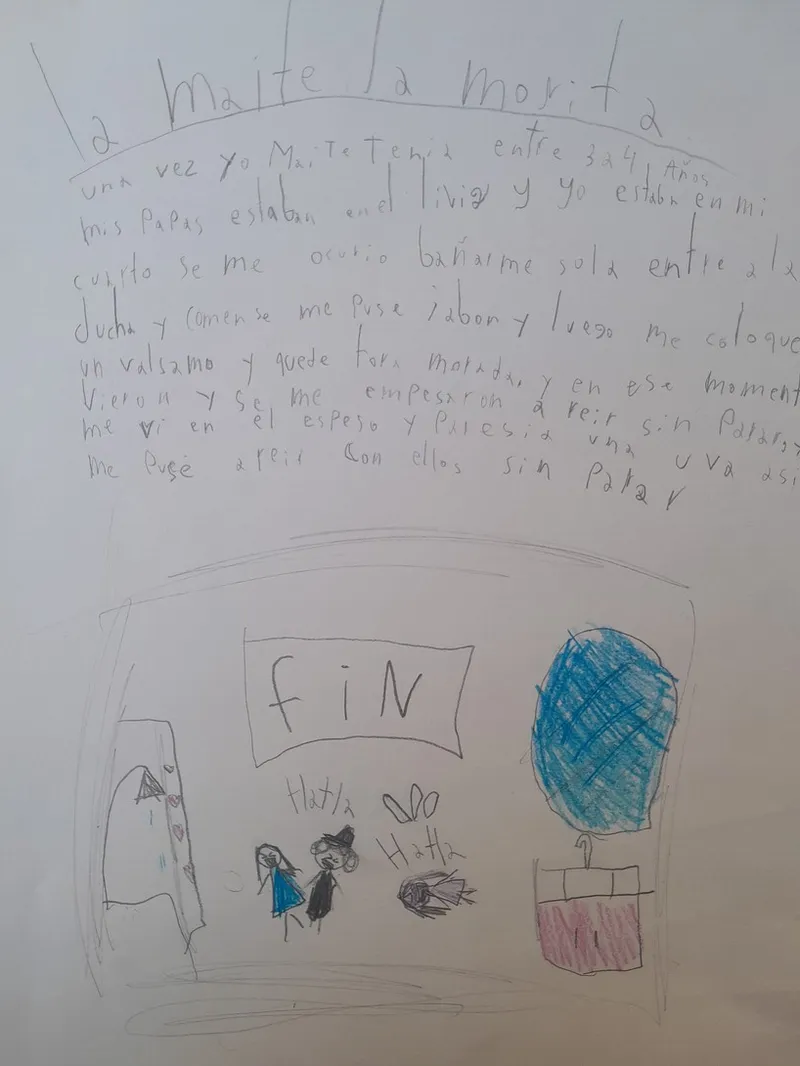 la maite la morita
una vez yo MaiTe Tenia entre 3 a 4 Años
mis PaPas estaban en el livig y yo estaba en mi
cuarto se me ocurio bañarme sola entre a la
ducha y comense me Puse jabon y luego me coloque
un valsamo y quede tora morada, y en ese moment
Vieron y se me empesaron a reir sin Parar, y
me vi en el espeso y Paresia una uva asi
me Puse a reir con ellos sin Parar
fiN
HaHa
HaHa